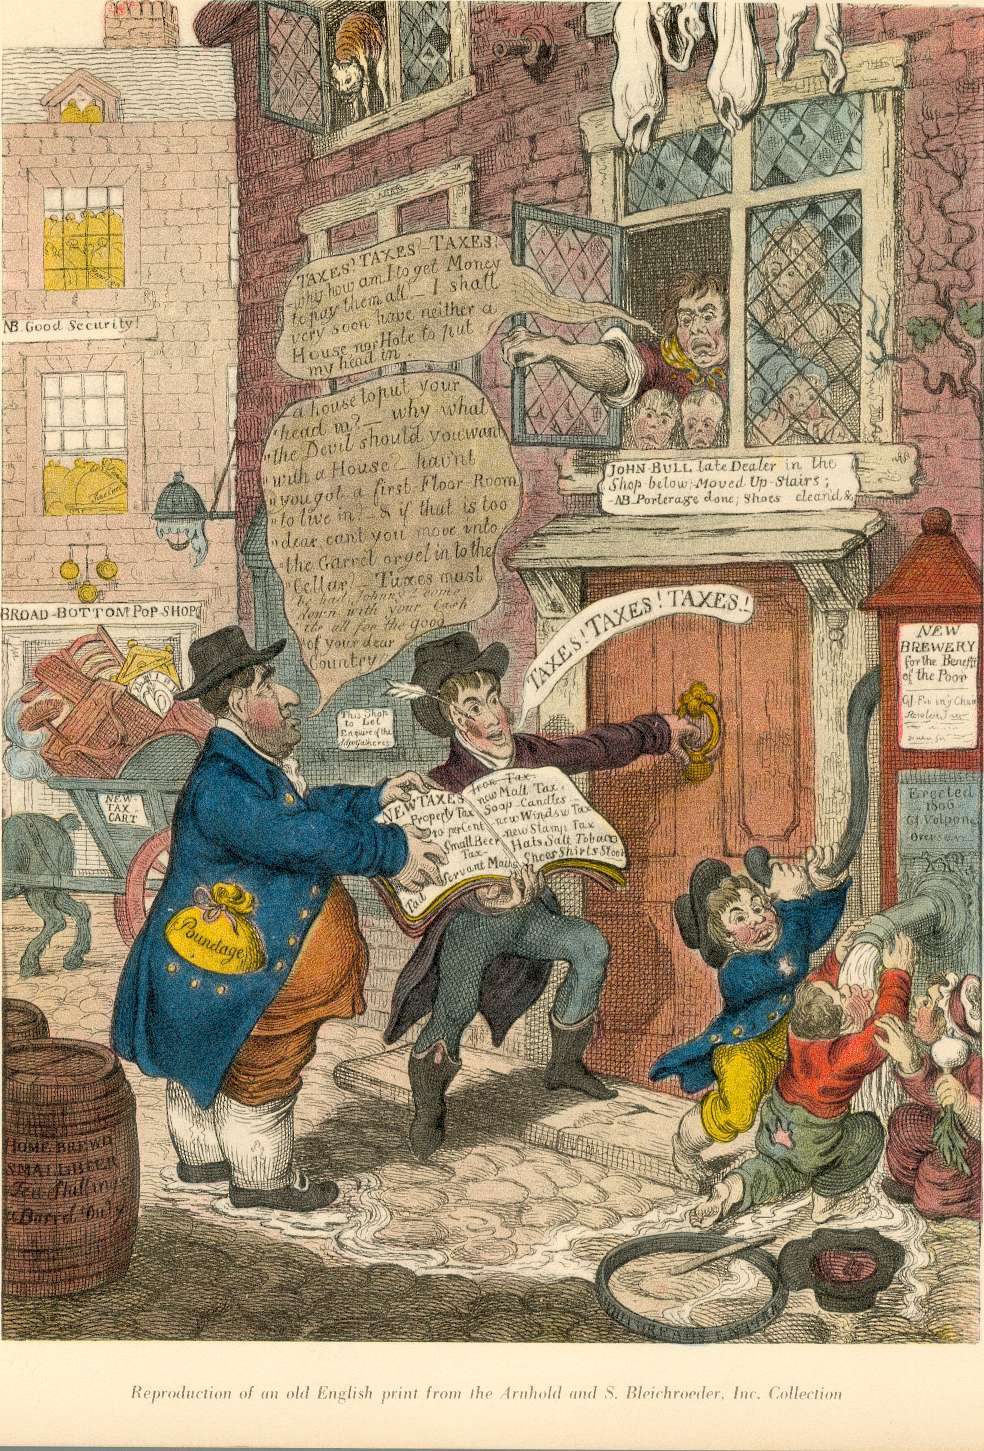 TAXES? TAXES? TAXES!
why how am I to get Money
to pay them all — I shall
very soon have neither a
House nor Hole to put
my head in
a house to put your
"head in? — why what
"the Devil should you want
"with a House? — hav'nt
"you got a first-Floor-Room
"to live in? & if that is too
"dear, cant you move into
"the Garret or get in to the
Cellar, — Taxes must
down with your
all for the good
of your dear
Country
TAXES! TAXES! TAXES!!
NB Good Security!
BROAD-BOTTOM POP-SHOP
This Shop
to Let
Enquire of the
NEW
TAX
CART
JOHN-BULL late Dealer in the
Shop below, Moved Up-Stairs;
NB Porterage done; Shoes clean'd &
NEW
BREWERY
for the Benefit
of the Poor
Erected
1806
NEW TAXES
Property Tax
10 per Cent
Small Beer
Tax
Servant Maids
Tad
Iron Tax
new Malt Tax
Soap - Candles
new Window Tax
new Stamp Tax
Hats Salt Tobaco
Shoes Shirts Stoc
Poundage
HOME BREW'D
SMALL BEER
Ten Shillings
a Barrel Only
Reproduction of an old English print from the Arnhold and S. Bleichroeder, Inc. Collection